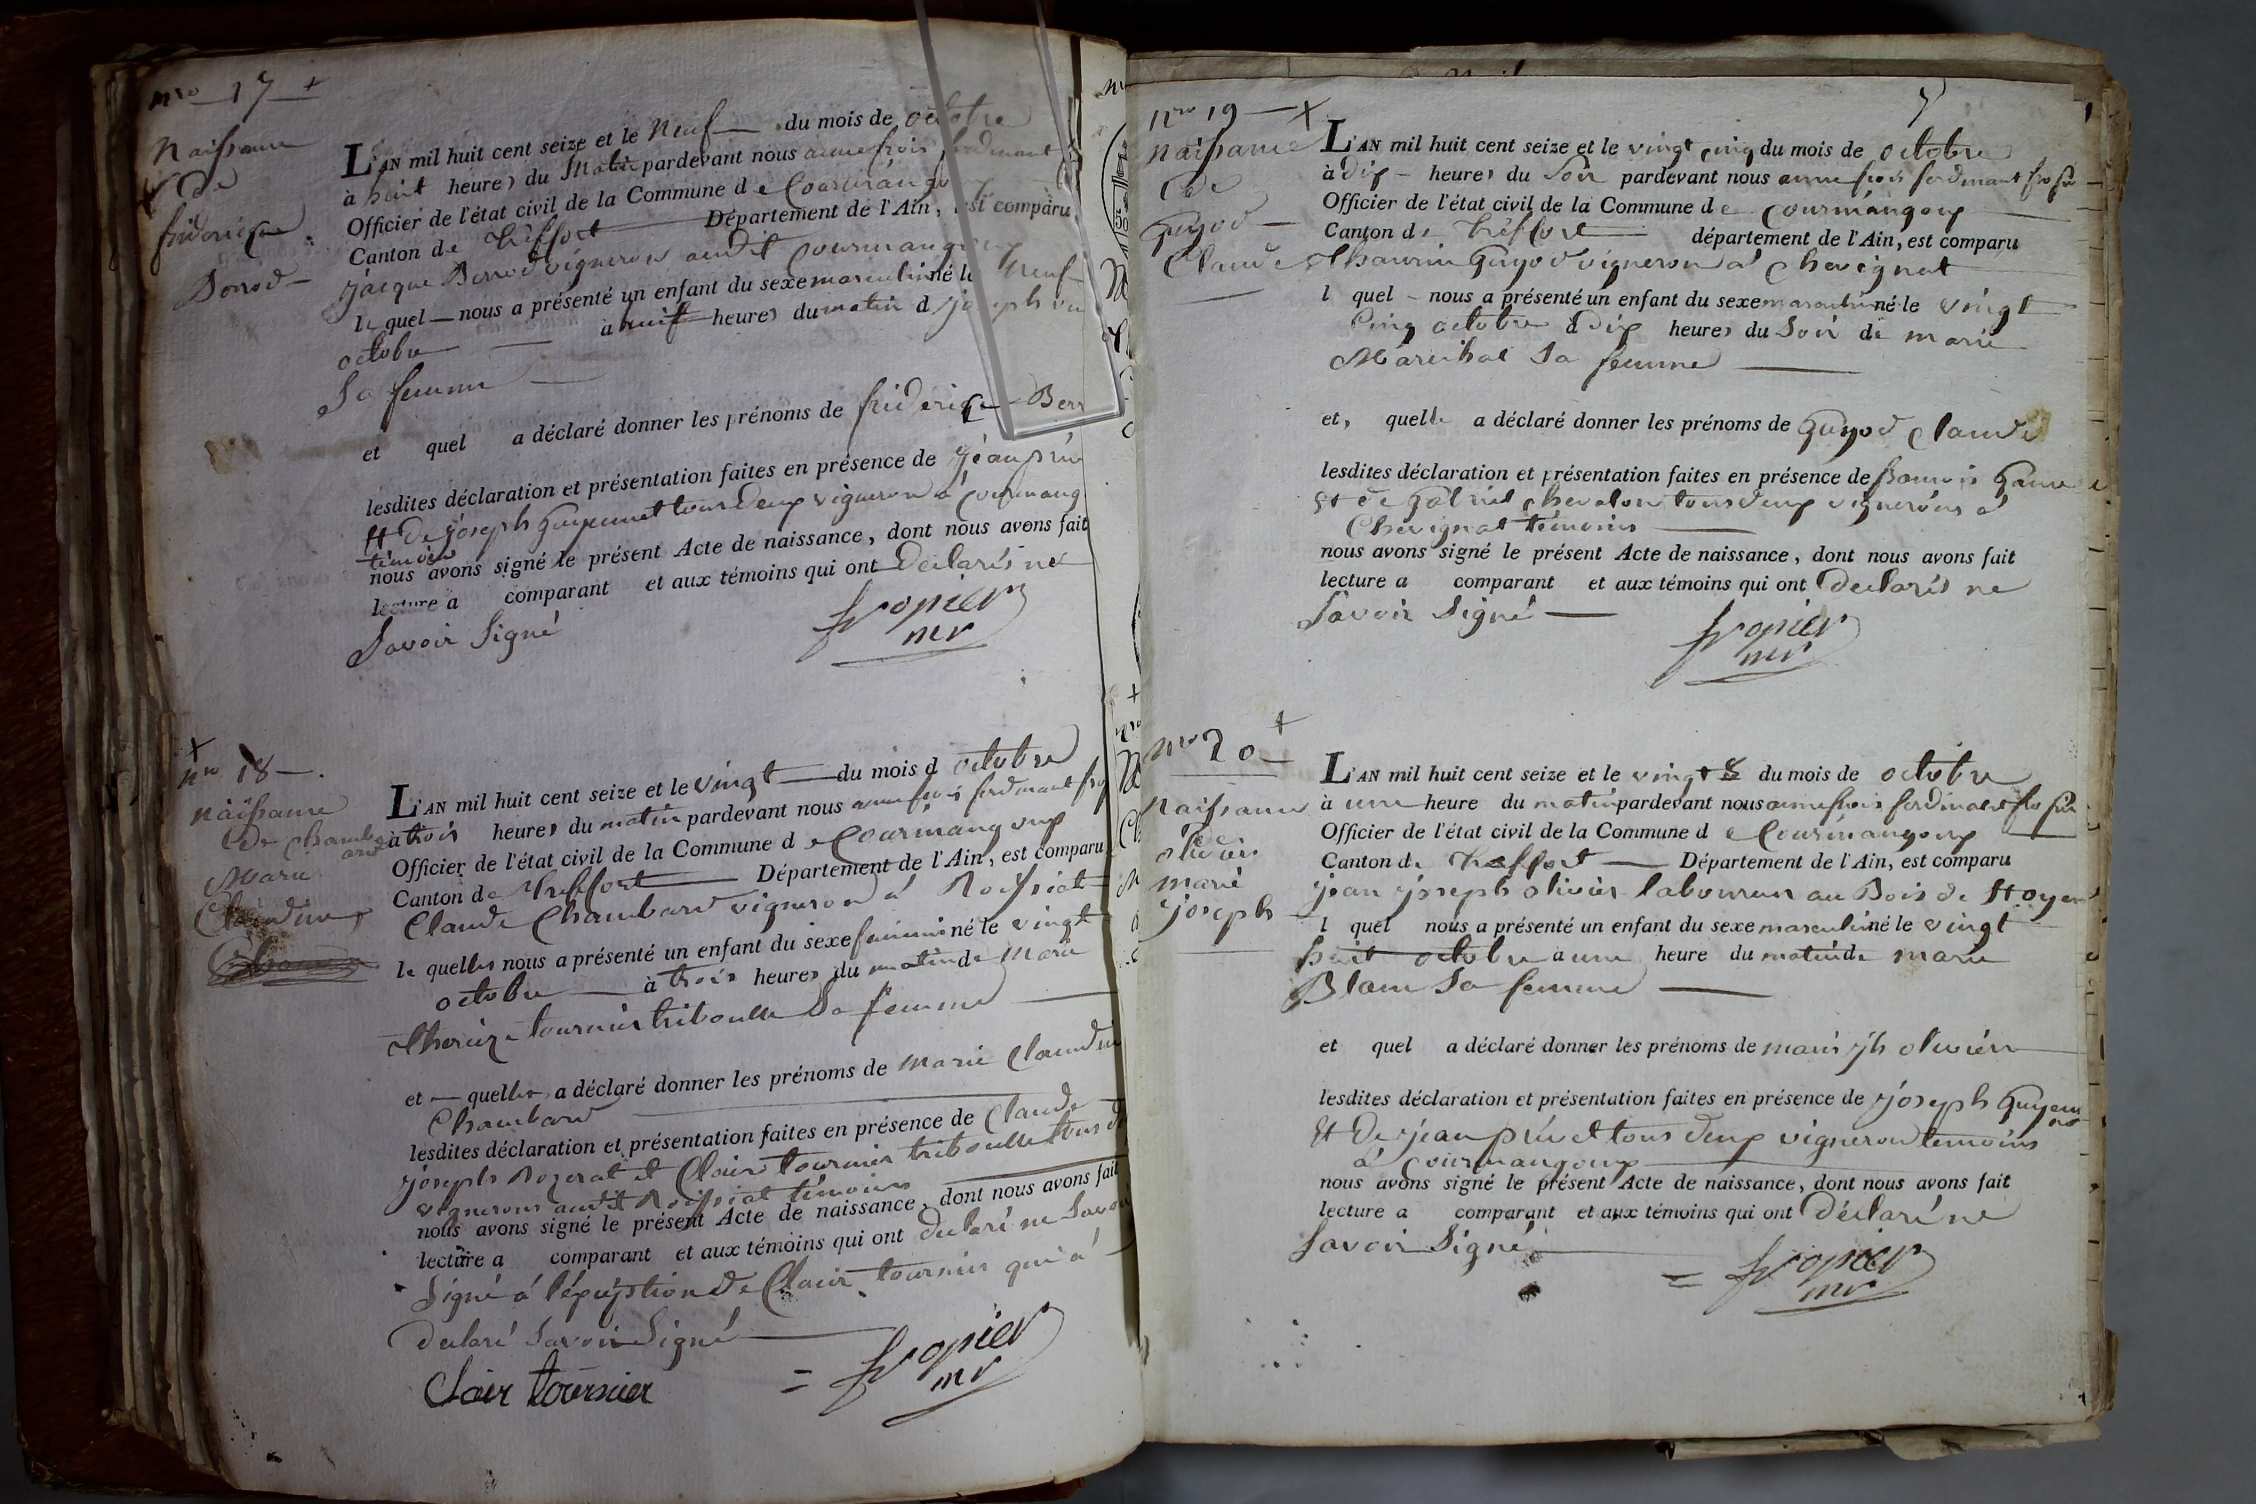 nro 17 +
Naissance
de
friderique
Borrod
L'AN mil huit cent seize et le Neuf du mois de octobre
à huit heures du Matin pardevant nous anne frois ferdinant
Officier de l'état civil de la Commune de Courmangoux
Canton de Trèffort Département de l'Ain, est comparu
jacque Borrod vigneron audit courmangoux
le quel nous a présenté un enfant du sexe masculin né le Neuf
octobre à huit heures du matin d joseph
Sa femme
et quel a déclaré donner les prénoms de friderique Borr
lesdites déclaration et présentation faites en présence de jean
Et De joseph Guyennet tous deux vigneron à Courmang
témoins
nous avons signé le présent Acte de naissance, dont nous avons fait
lecture a comparant et aux témoins qui ont Déclarés ne
Savoir Signé
fropier
mr
+
nro 18
Naissance
de Chamb
ard
Marie
Claudine
L'AN mil huit cent seize et le vingt du mois d octobre
à trois heures du matin pardevant nous anne frois ferdinant fro
Officier de l'état civil de la Commune de Courmangoux
Canton de Treffort Département de l'Ain, est comparu
Claude Chambard vigneron à Roissiat
le quelles nous a présenté un enfant du sexe feminin né le vingt
octobre à trois heures du matin de Marie
Therèze tournier triboulle Sa femme
et quelles a déclaré donner les prénoms de Marie Claudin
Chambard
lesdites déclaration et présentation faites en présence de Claude
joseph Rozerat et Clair tournier triboulle tous d
vignerons audit Roissiat témoins
nous avons signé le présent Acte de naissance, dont nous avons fait
lecture a comparant et aux témoins qui ont déclaré ne Savoir
Signé à l'éxéption de Clair tournier qui à
déclaré Savoir Signé
Clair tournier = fropier
mr
7
nro 19 +
Naissance
de
Guyod
Claude
L'AN mil huit cent seize et le vingt cinq du mois de octobre
à dix heures du Soir pardevant nous anne frois ferdinant
Officier de l'état civil de la Commune de Courmangoux
Canton de Trèffort département de l'Ain, est comparu
Thaurin Guyod vigneron à Chevignat
l quel nous a présenté un enfant du sexe masculin né le vingt
Cinq octobre à Dix heures du Soir de marie
Maréchal Sa femme
et, quelle a déclaré donner les prénoms de Guyod Claude
lesdites déclaration et présentation faites en présence de francois
Et de Gabriel Chevalon tous deux vignerons à
Chevignat témoins
nous avons signé le présent Acte de naissance, dont nous avons fait
lecture a comparant et aux témoins qui ont Déclarés ne
Savoir Signé
fropier
mr
nro 20 +
Naissance
de
olivier
marie
joseph
L'AN mil huit cent seize et le vingt 8 du mois de octobre
à une heure du matin pardevant nous anne frois ferdinant
Officier de l'état civil de la Commune de Courmangoux
Canton de Treffort Département de l'Ain, est comparu
jean joseph olivier laboureur au Bois de
l quel nous a présenté un enfant du sexe masculin né le vingt
huit octobre a une heure du matin de marie
Blanc Sa femme
et quel a déclaré donner les prénoms de marie jh olivier
lesdites déclaration et présentation faites en présence de joseph Guyen
net
Et De jean privet tous deux vigneron temoins
à Courmangoux
nous avons signé le présent Acte de naissance, dont nous avons fait
lecture a comparant et aux témoins qui ont Déclaré ne
Savoir Signé
= fropier
mr